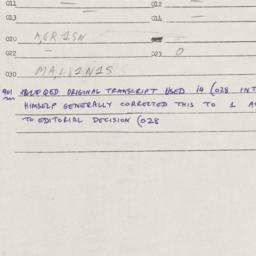 011 — 012 —
013 014 —
020 A,GR1SN
022 — 023 0
030 MAL12N15
901 ORIGINAL TRANSCRIPT USED 14 (028 INT
HIMSELF GENERALLY CORRECTED THIS TO 1 A
TO EDITORIAL DECISION (028